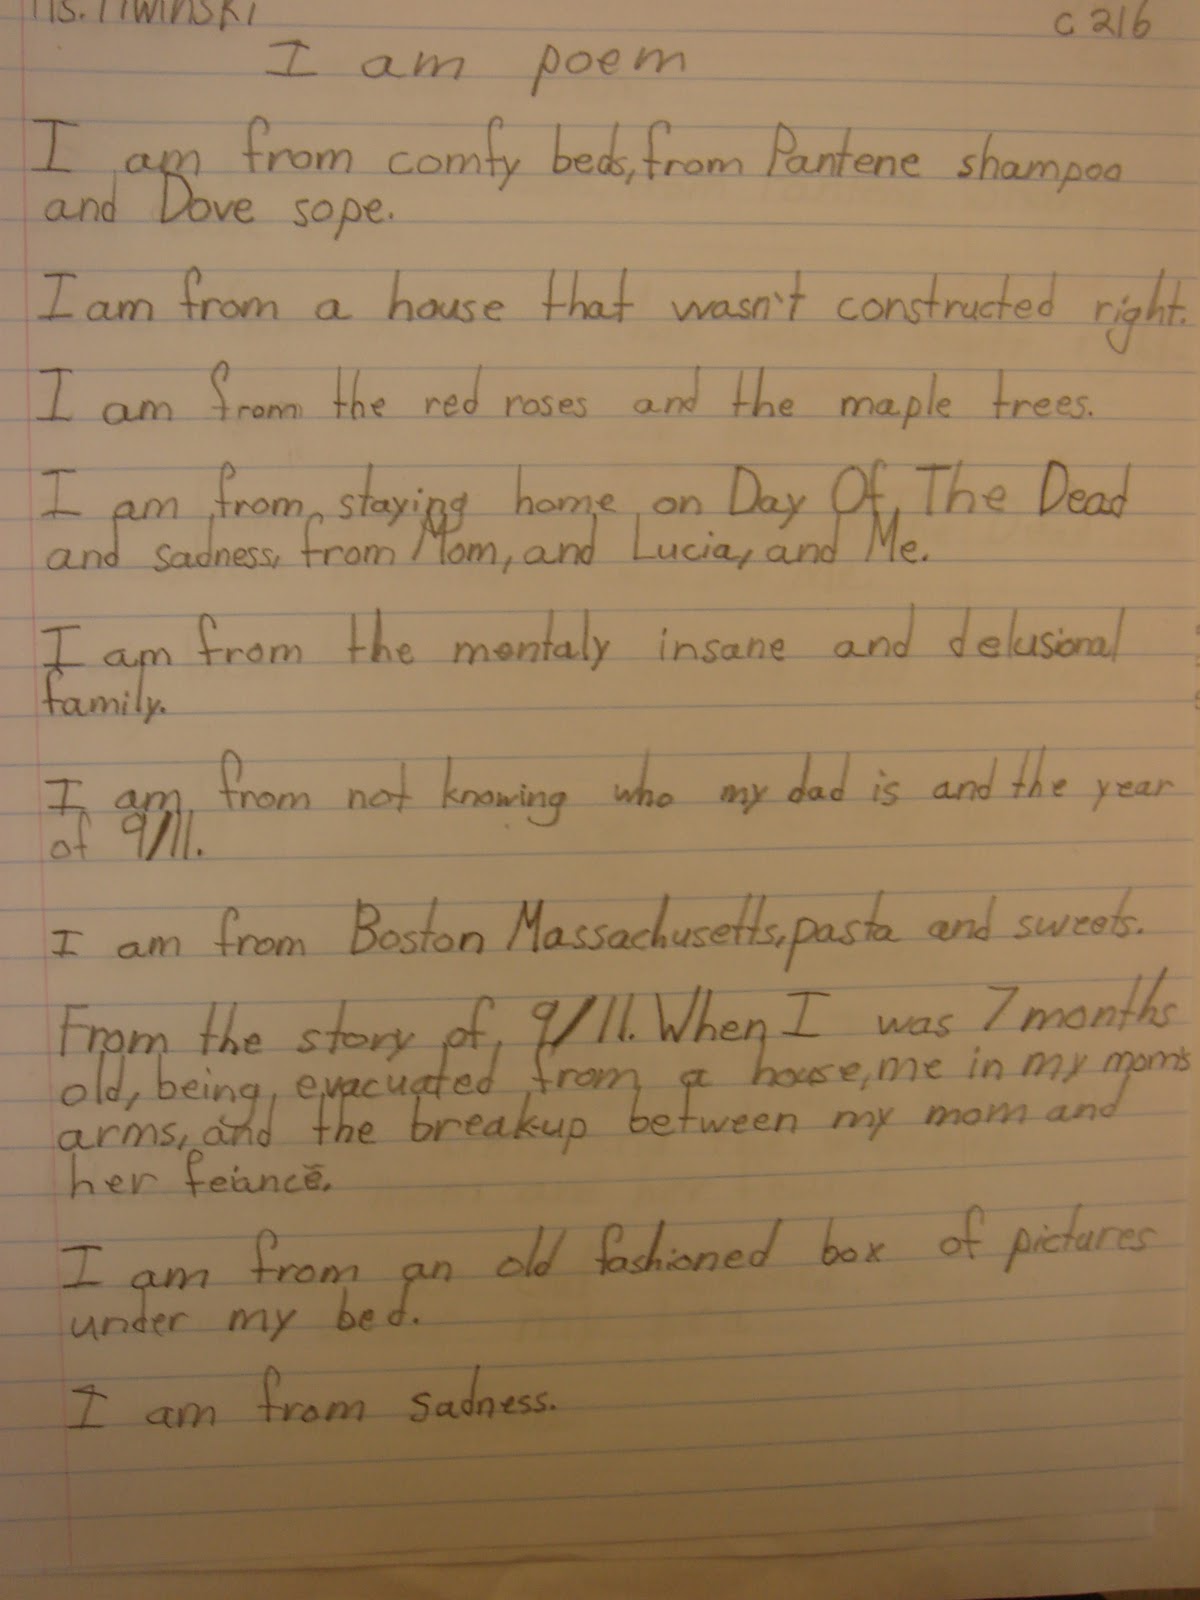 Ms.
c 216
I am poem
I am from comfy beds, from Pantene shampoo
and Dove sope.
I am from a house that wasn't constructed right.
I am from the red roses and the maple trees.
I am from staying home on Day Of The Dead
and sadness, from Mom, and Lucia, and Me.
I am from the mentaly insane and delusional
family.
I am from not knowing who my dad is and the year
of 9/11.
I am from Boston Massachusetts, pasta and sweets.
From the story of 9/11. When I was 7 months
old, being evacuated from a house, me in my mom's
arms, and the breakup between my mom and
her feiancé.
I am from an old fashioned box of pictures
under my bed.
I am from sadness.